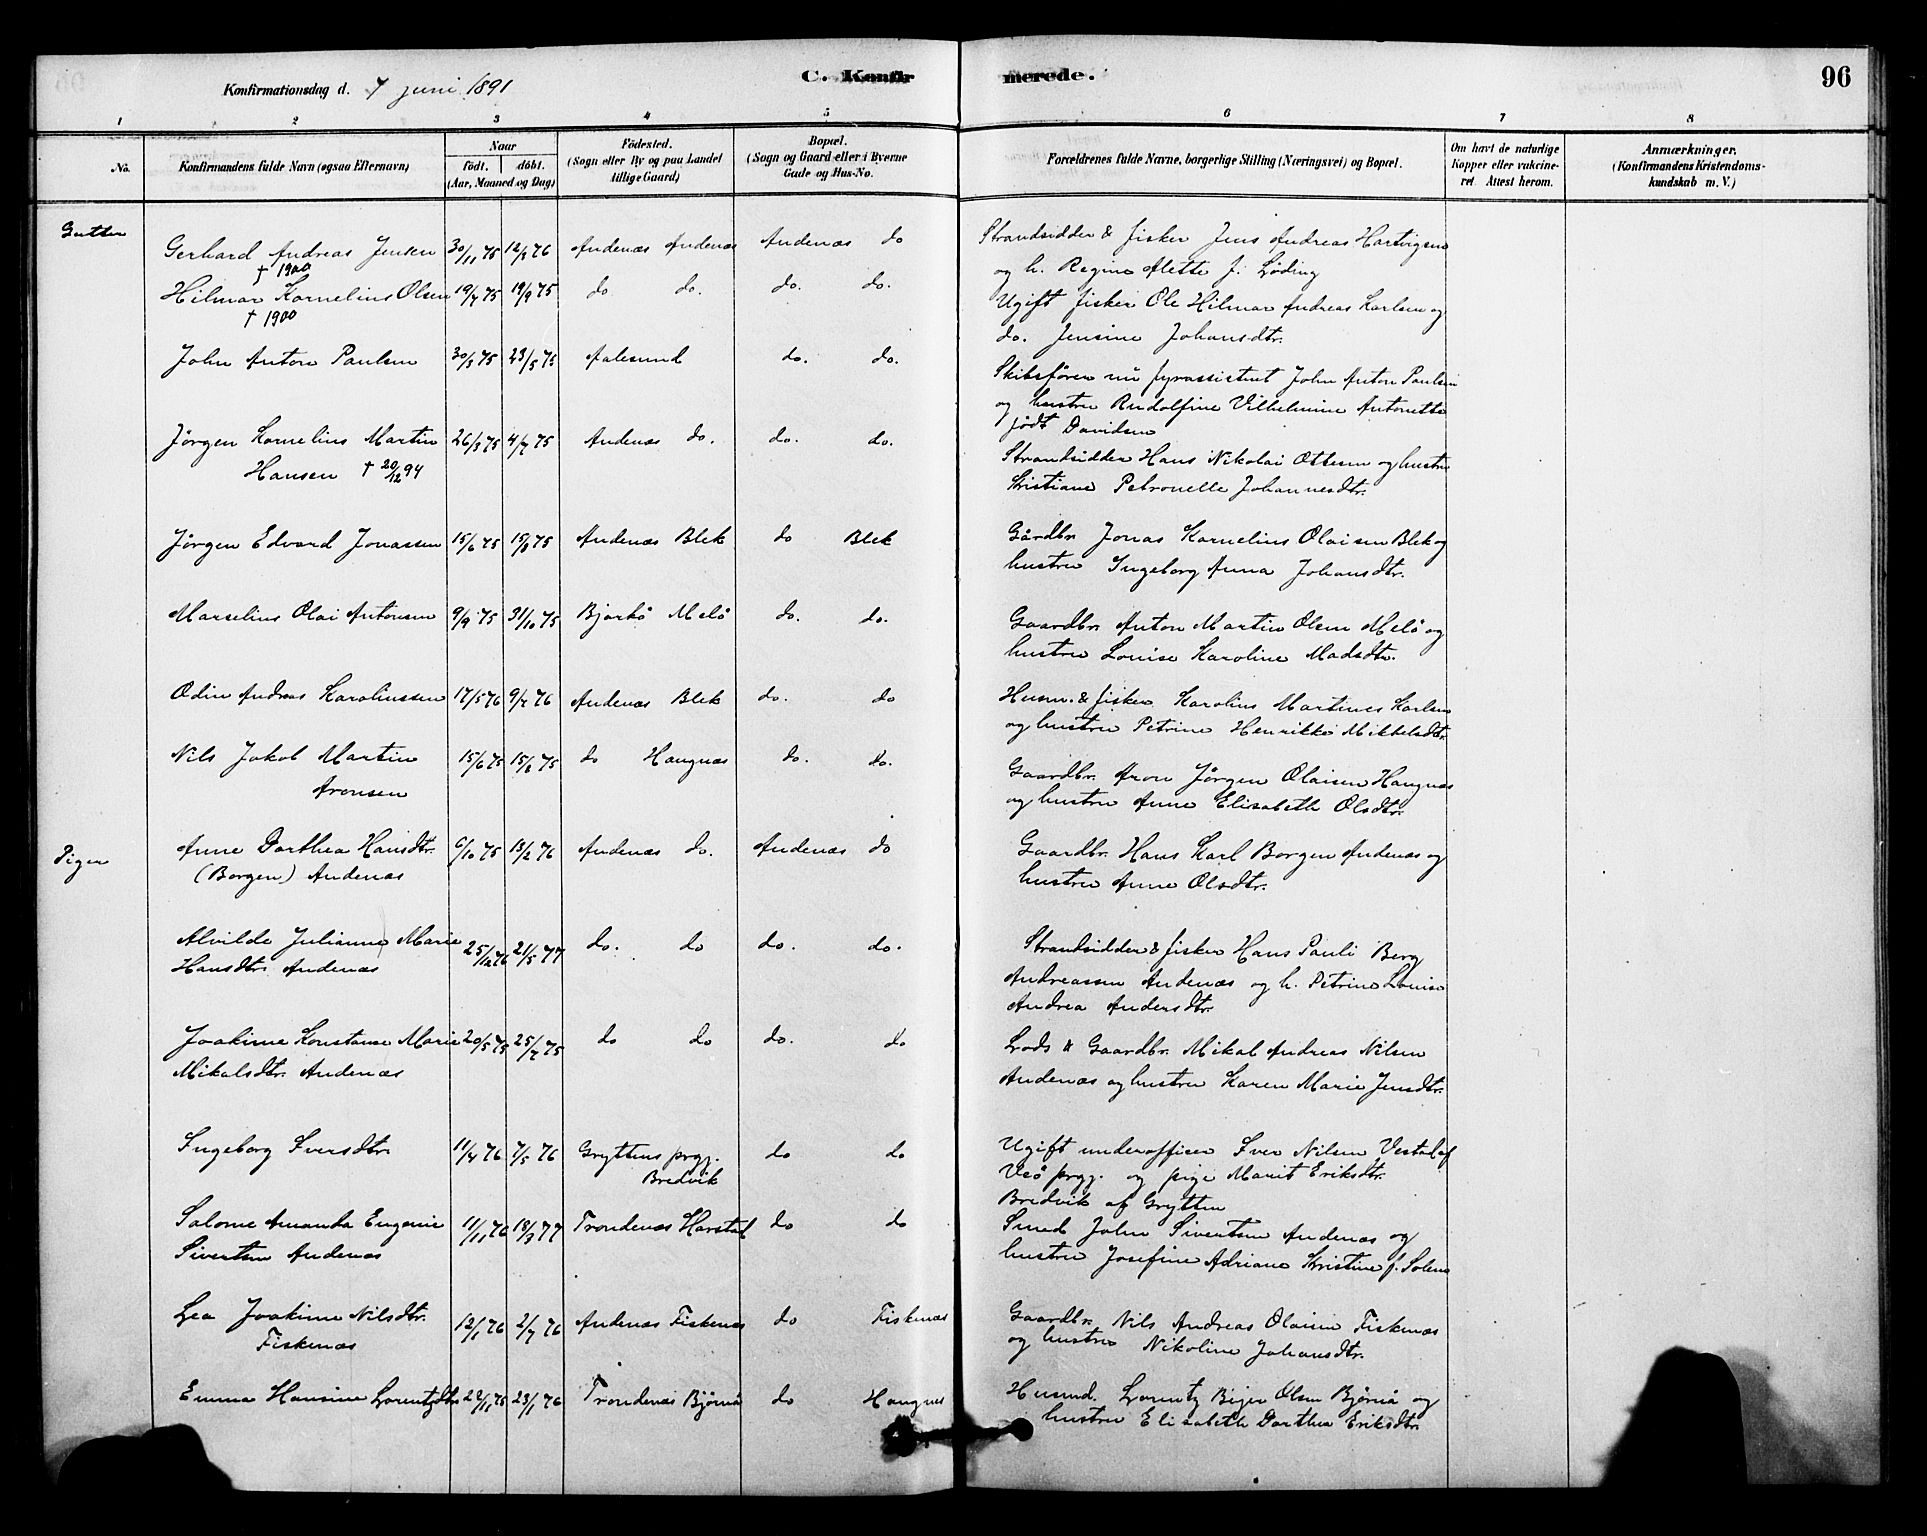 Konfirmationsdag d. 7 juni 1891
C. Konfirmerede.
96
1 2 3 4 5 6 7 8
No.
Konfirmandens fulde Navn (ogsaa Efternavn)
Naar
födt. döbt.
(Aar, Maaned og Dag)
Födested.
(Sogn eller By og paa Landet
tillige Gaard)
Bopæl.
(Sogn og Gaard eller i Byerne
Gade og Hus-No.
Forældrenes fulde Navne, borgerlige Stilling (Næringsvei) og Bopæl.
Om havt de naturlige
Kopper eller vakcine-
ret. Attest herom.
Anmærkninger.
(Konfirmandens Kristendoms-
kundskab m. V.)
Gutter
Gerhard Andreas Jensen 30/11 75 Andenæs Andenæs Andenæs do
† 1900
Strandsidder & fisker Jens Andreas Hartvigsen
og h. Regine Mette f. Løding
Hilmar Kornelius Olsen 19/7 75 19/9 75 do do. do. do.
† 1900
Ugift fisker Ole Hilmar Andreas Karlsen og
do. Jensine Johansdtr.
John Anton Paulsen 30/3 75 23/5 75 Aalesund do. do.
Skibsfører nu fyrassistent John Anton Paulsen
og hustru Rudolfine Vilhelmine Antonette
født Davidsen
Jörgen Kornelius Martin 26/3 75 4/7 75 Andenæs do. do. do.
Hansen † 20/12 94
Strandsidder Hans Nikolai Ottesen og hustru
Kristiane Petronelle Johannesdtr.
Jörgen Edvard Jonassen 15/6 75 15/8 75 Andenæs Blek do Blek
Gårdbr. Jonas Kornelius Olaisen Blek og
hustru Ingeborg Anna Johansdtr.
Marselius Olai Antonsen 9/9 75 31/10 75 Bjarkö Melö do. do.
Gaardbr. Anton Martin Olsen Melö og
hustru Louise Karoline Madsdtr.
Odin Andreas Karolinssen 17/5 76 9/7 76 Andenæs Blek do. do
Husm. & fisker Karolius Martines Karlsen
og hustru Petrine Henrikke Mikkelsdtr.
Nils Jakob Martin 15/6 75 15/8 75 do Haugnæs do. do.
Aronsen
Gaardbr. Aron Jörgen Olaisen Haugnæs
og hustru Anne Elisabeth Olsdtr.
Piger
Anne Dorthea Hansdtr. 6/10 75 13/2 76 Andenæs do. Andenæs do
(Borgen) Andenæs
Gaardbr. Hans Karl Borgen Andenæs og
hustru Anne Olsdtr.
Alvilde Julianne Marie 25/12 76 21/5 77 do. do do. do.
Hansdtr. Andenæs
Strandsidder & fisker Hans Pauli Berg
Andreassen Andenæs og h. Petrine Louise
Andrea Andersdtr.
Joakime Konstanse Marie 20/5 75 25/7 75 do do do. do
Mikalsdtr. Andenæs
Lods & Gaardbr. Mikal Andreas Nilsen
Andenæs og hustru Karen Marie Jensdtr.
Ingeborg Iversdtr. 11/4 76 7/5 76 Gryttens prgj. do do
Bredvik
Ugift underofficer Iver Nilsen Vestad af
Veö prgj. og pige Marit Eriksdtr.
Bredvik af Grytten
Salome Amanda Eugenie 11/11 76 18/3 77 Trondenæs Harstad do do
Sivertsen Andenæs
Smed John Sivertsen Andenæs og
hustru Josefine Adriane Kristine f. Solem
Lea Joakime Nilsdtr. 12/1 76 2/7 76 Andenæs Fiskenæs do Fiskenæs
Fiskenæs
Gaardbr. Nils Andreas Olaisen Fiskenæs
og hustru Nikoline Johansdtr.
Emma Hansine Lorentzdtr. 22/11 75 23/1 76 Trondenæs Bjørnå do Haugnes
Husmd. Lorentz Bejer Olsen Bjørnå og
hustru Elisabeth Dorthea Eriksdtr.